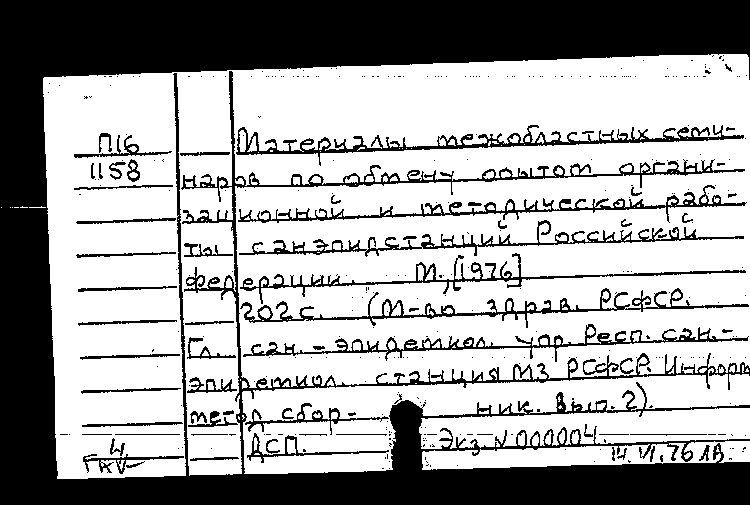 П16 Материалы межобластных семи-
1158 наров по обмену опытом органи-
зационной и методической рабо-
ты санэпидстанций Российской
федерации. М., [1976]
202 с. (М-во здрав. РСФСР.
Гл. сан.-эпидемиол. упр. Респ. сан.-
эпидемиол. станция МЗ РСФСР. Информ
метод сбор- ник. Вып. 2).
ДСП. Экз. N 000004.
14.VI.76